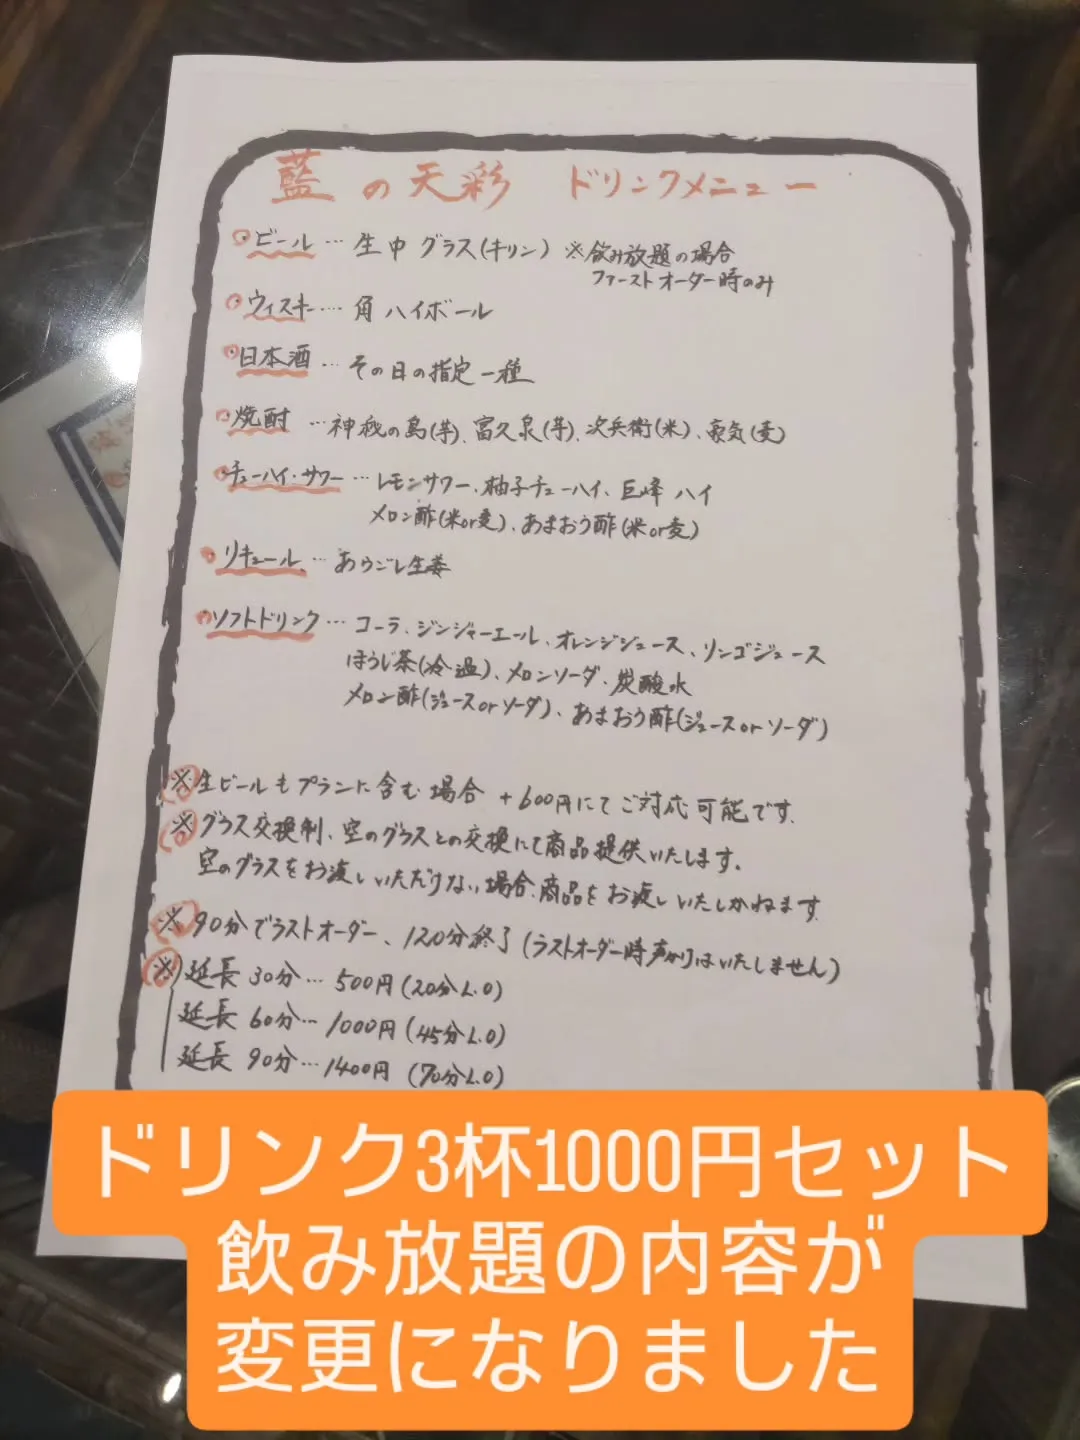 藍の天彩 ドリンクメニュー
ビール … 生中 グラス(キリン) ※飲み放題の場合
ファーストオーダー時のみ
ウィスキー … 角ハイボール
日本酒 … その日の指定一種
焼酎 … 神秘の島(芋)、富久泉(芋)、次兵衛(米)、豪気(麦)
チューハイ・サワー … レモンサワー、柚子チューハイ、巨峰ハイ
メロン酢(米or麦)、あまおう酢(米or麦)
リキュール … あらごし生姜
ソフトドリンク … コーラ、ジンジャーエール、オレンジジュース、リンゴジュース
ほうじ茶(冷・温)、メロンソーダ、炭酸水
メロン酢(ジュースorソーダ)、あまおう酢(ジュースorソーダ)
※生ビールもプランに含む場合 +600円にてご対応可能です。
※グラス交換制、空のグラスとの交換にて商品提供いたします。
空のグラスをお渡しいただけない場合、商品をお渡しいたしかねます。
※90分でラストオーダー、120分終了(ラストオーダー時声かけはいたしません)
※延長 30分… 500円(20分L.O)
延長 60分… 1000円(45分L.O)
延長 90分… 1400円(70分L.O)
ドリンク3杯1000円セット
飲み放題の内容が
変更になりました